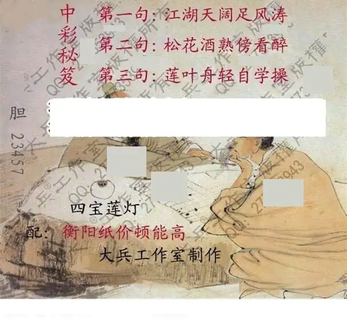 中彩秘笈
第一句:江湖天阔足风涛
第二句:松花酒熟傍看醉
第三句:莲叶舟轻自学操
胆 23457
四宝莲灯
配:衡阳纸价顿能高
大兵工作室制作